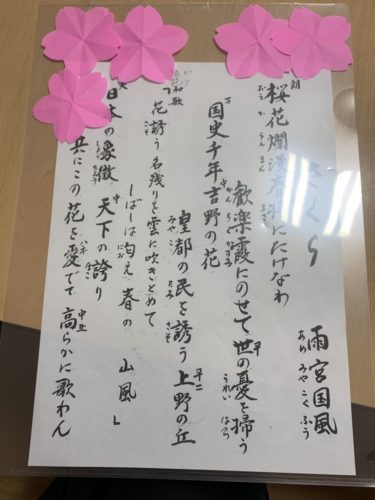 さくら　雨宮国風
あめ みや こく ふう
桜花爛漫春将にたけなわ
おう か らん まん まさ
歓楽霞にのせて世の憂を掃う
国史千年吉野の花
皇都の民を誘う上野の丘
和歌
「花誘う名残りを雲に吹きとめて
しばしは匂え春の山風」
日本の象徴 天下の誇り
共にこの花を愛でて高らかに歌わん